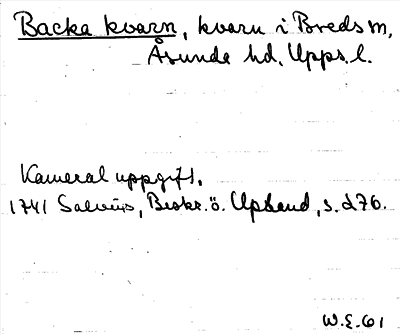 Backa kvarn, kvarn i Breds sn,
Åsunda hd, Upps. l.
Kameral uppgift.
1741 Salvius, Beskr. ö. Upland, s. 276.
W.E. 61